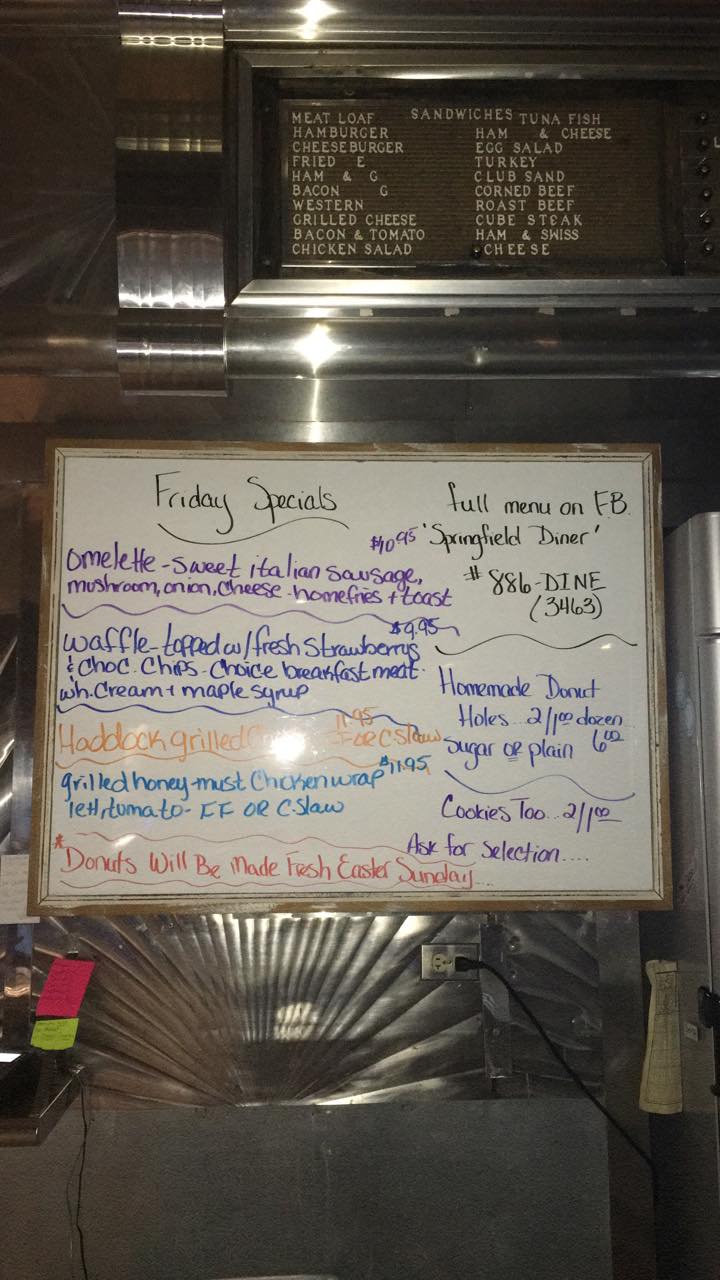 SANDWICHES
MEAT LOAF
HAMBURGER
CHEESEBURGER
FRIED E
HAM & G
BACON G
WESTERN
GRILLED CHEESE
BACON & TOMATO
CHICKEN SALAD
TUNA FISH
HAM & CHEESE
EGG SALAD
TURKEY
CLUB SAND
CORNED BEEF
ROAST BEEF
CUBE STEAK
HAM & SWISS
CHEESE
Friday Specials
$10.95
Omelette - Sweet italian sausage,
mushroom, onion, cheese - homefries + toast
$9.95
Waffle - topped w/ fresh Strawberrys
& Choc. Chips - Choice breakfast meat.
wh. Cream + maple syrup
11.95
Haddock grilled OR C. Slaw
grilled honey-must Chicken wrap $11.95
lett, tomato - FF OR C. Slaw
*Donuts Will Be Made Fresh Easter Sunday....
full menu on F.B.
'Springfield Diner'
# 886-DINE
(3463)
Homemade Donut
Holes... 2/1.00 dozen
Sugar or plain 6.00
Cookies Too... 2/1.00
Ask for Selection....